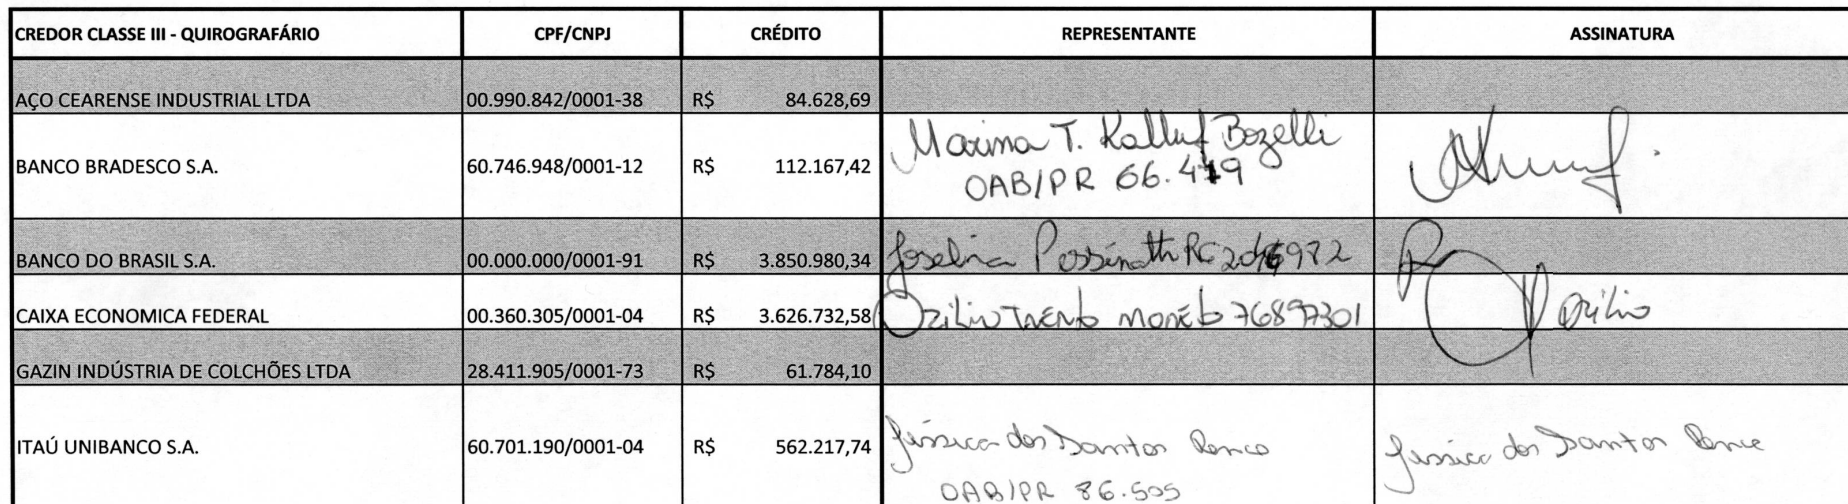 CREDOR CLASSE III - QUIROGRAFÁRIO CPF/CNPJ CRÉDITO REPRESENTANTE ASSINATURA
AÇO CEARENSE INDUSTRIAL LTDA 00.990.842/0001-38 R$ 84.628,69
BANCO BRADESCO S.A. 60.746.948/0001-12 R$ 112.167,42 Marina T. Kalluf Bozelli
OAB/PR 66.419
BANCO DO BRASIL S.A. 00.000.000/0001-91 R$ 3.850.980,34 Joselina
CAIXA ECONOMICA FEDERAL 00.360.305/0001-04 R$ 3.626.732,58 Ozilio 76897301 Ozilio
GAZIN INDÚSTRIA DE COLCHÕES LTDA 28.411.905/0001-73 R$ 61.784,10
ITAÚ UNIBANCO S.A. 60.701.190/0001-04 R$ 562.217,74 Jéssica dos Santos Jessica dos Santos
OAB/PR 86.505